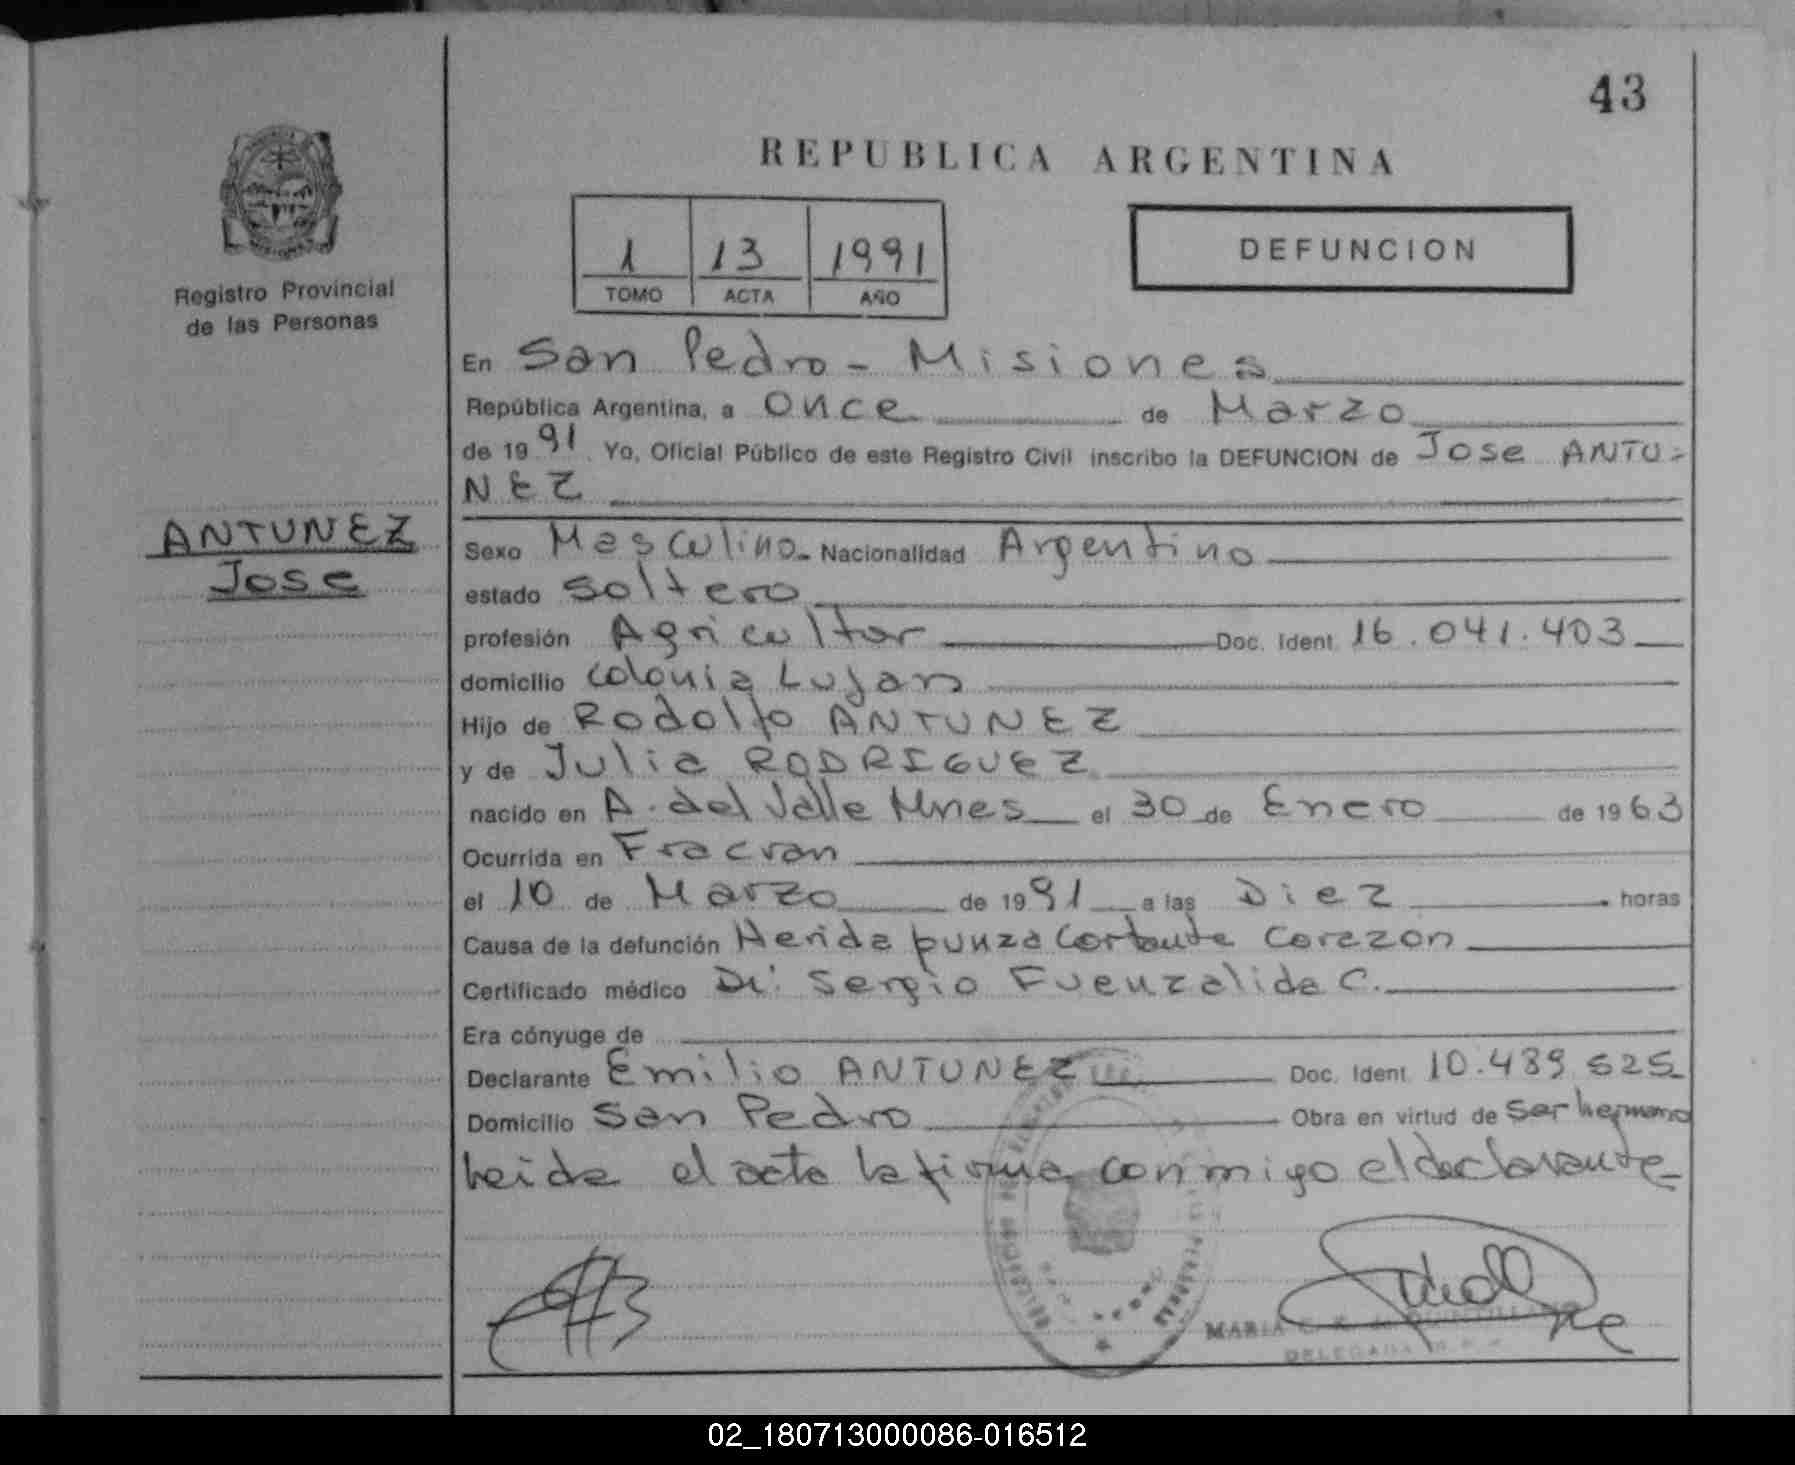 43
REPUBLICA ARGENTINA
1 13 1991
TOMO ACTA AÑO
DEFUNCION
Registro Provincial
de las Personas
En San Pedro - Misiones
República Argentina, a Once de Marzo
de 19 91 Yo, Oficial Público de este Registro Civil inscribo la DEFUNCION de Jose ANTU-
NEZ
ANTUNEZ
Jose
Sexo Masculino - Nacionalidad Argentino
estado Soltero
profesión Agricultor Doc. Ident. 16.041.403
domicilio Colonia Lujan
Hijo de Rodolfo ANTUNEZ
y de Julia RODRIGUEZ
nacido en A. del Valle Mnes el 30 de Enero de 19 63
Ocurrida en Fracran
el 10 de Marzo de 19 91 a las Diez horas
Causa de la defunción Herida punza Cortante Corazon
Certificado médico Dr. Sergio Fuenzalida C.
Era cónyuge de
Declarante Emilio ANTUNEZ Doc. Ident. 10.489.525
Domicilio San Pedro Obra en virtud de Ser hermano
Leida el acta la firma conmigo el declarante
MARIA
DELEGADA
02_180713000086-016512